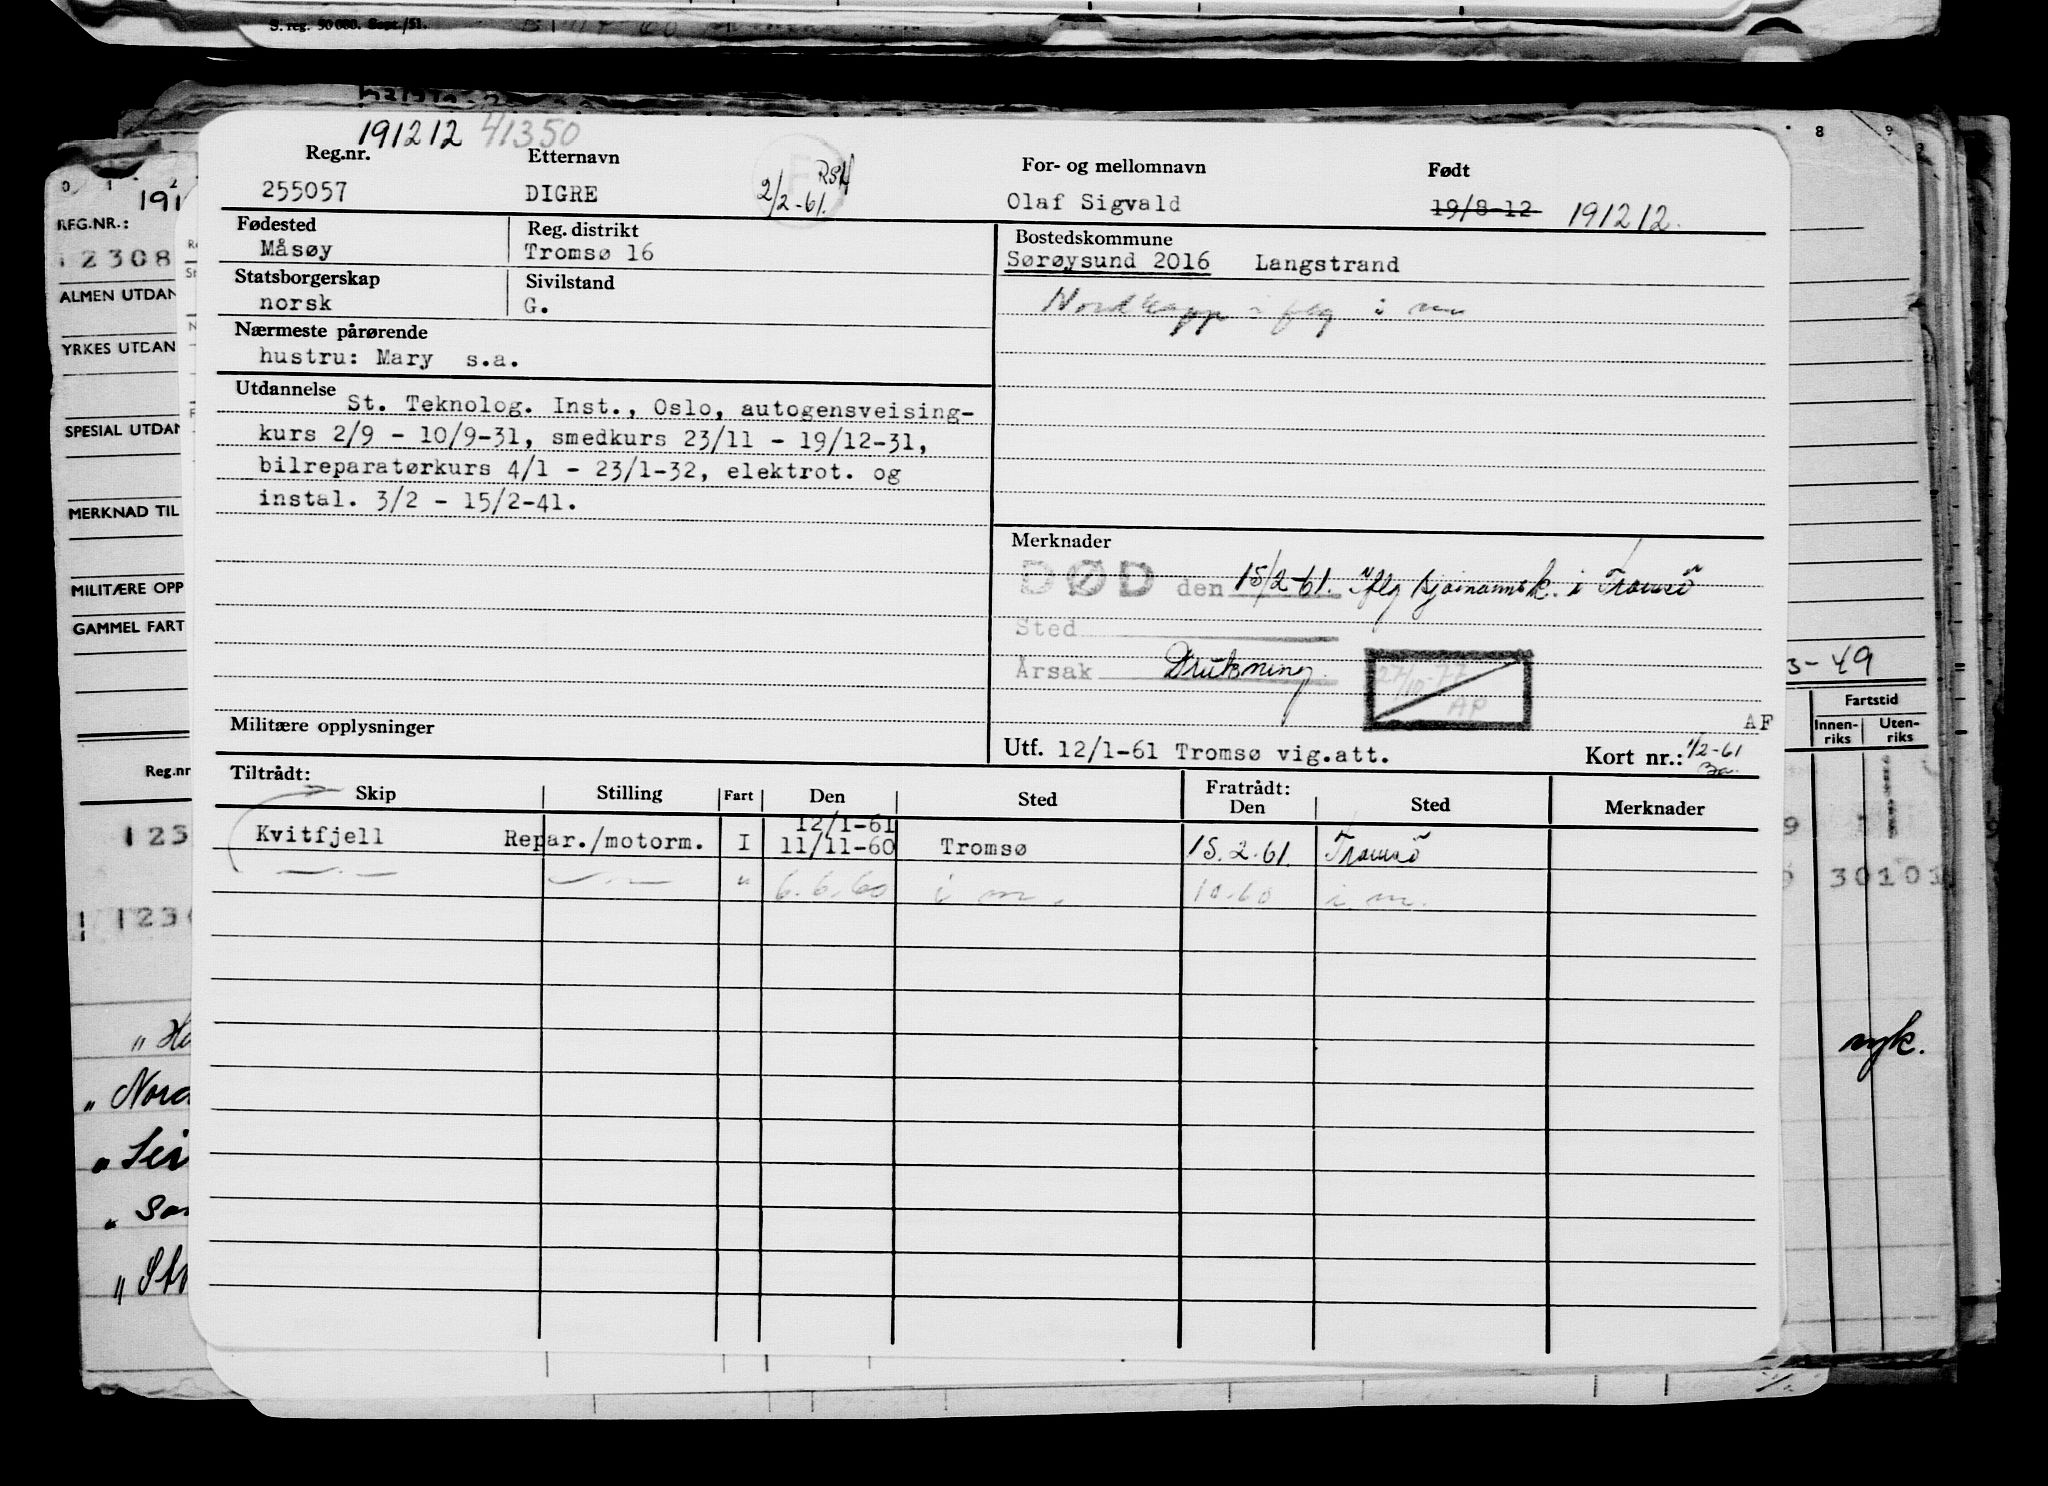 S. reg. 50 000. Sept./51.
191212 41350
Reg.nr. Etternavn For- og mellomnavn Født
255057 DIGRE 2/2-61. Olaf Sigvald 19/8-12 191212.
Fødested Reg. distrikt Bostedskommune
Måsøy Tromsø 16 Sørøysund 2016 Langstrand
Statsborgerskap Sivilstand
norsk G.
Nordkapp iflg i m
Nærmeste pårørende
hustru: Mary s.a.
Utdannelse
St. Teknolog. Inst., Oslo, autogensveising-
kurs 2/9 - 10/9-31, smedkurs 23/11 - 19/12-31,
bilreparatørkurs 4/1 - 23/1-32, elektrot. og
instal. 3/2 - 15/2-41.
Merknader
DØD den 15/2-61. Iflg sjømannsk. i Tromsø
Sted
Årsak Drukning
27/10-77
AP
Militære opplysninger
AF
Utf. 12/1-61 Tromsø vig.att. Kort nr.: 1/2-61
Tiltrådt: Fratrådt:
Skip Stilling Fart Den Sted Den Sted Merknader
12/1-61
Kvitfjell Repar./motorm. I 11/11-60 Tromsø 15.2.61. Tromsø
—"— —"— " 6.6.60 i m. 10.60 i m.
0 1 2
191
REG.NR.:
12308
ALMEN UTDAN
YRKES UTDAN
SPESIAL UTDAN
MERKNAD TIL
MILITÆRE OPP
GAMMEL FART
Reg.nr
123
123
" Nord
8 9
3-49
Fartstid
Innen-riks Uten-riks
30101